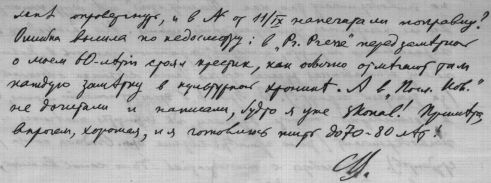 опровергнут, и в № от 11/IX напечатали поправку?
Ошибка вышла по недосмотру: в „Pr. Presse" перед заметкой
о моем 60-летии стоял крестик, как обычно отмечают там
каждую заметку в культурной хронике. А в „Посл. Нов."
не дочитали и написали, будто я уже skonal! Примета,
впрочем, хорошая, и я готовлюсь жить до 70-80 лет!